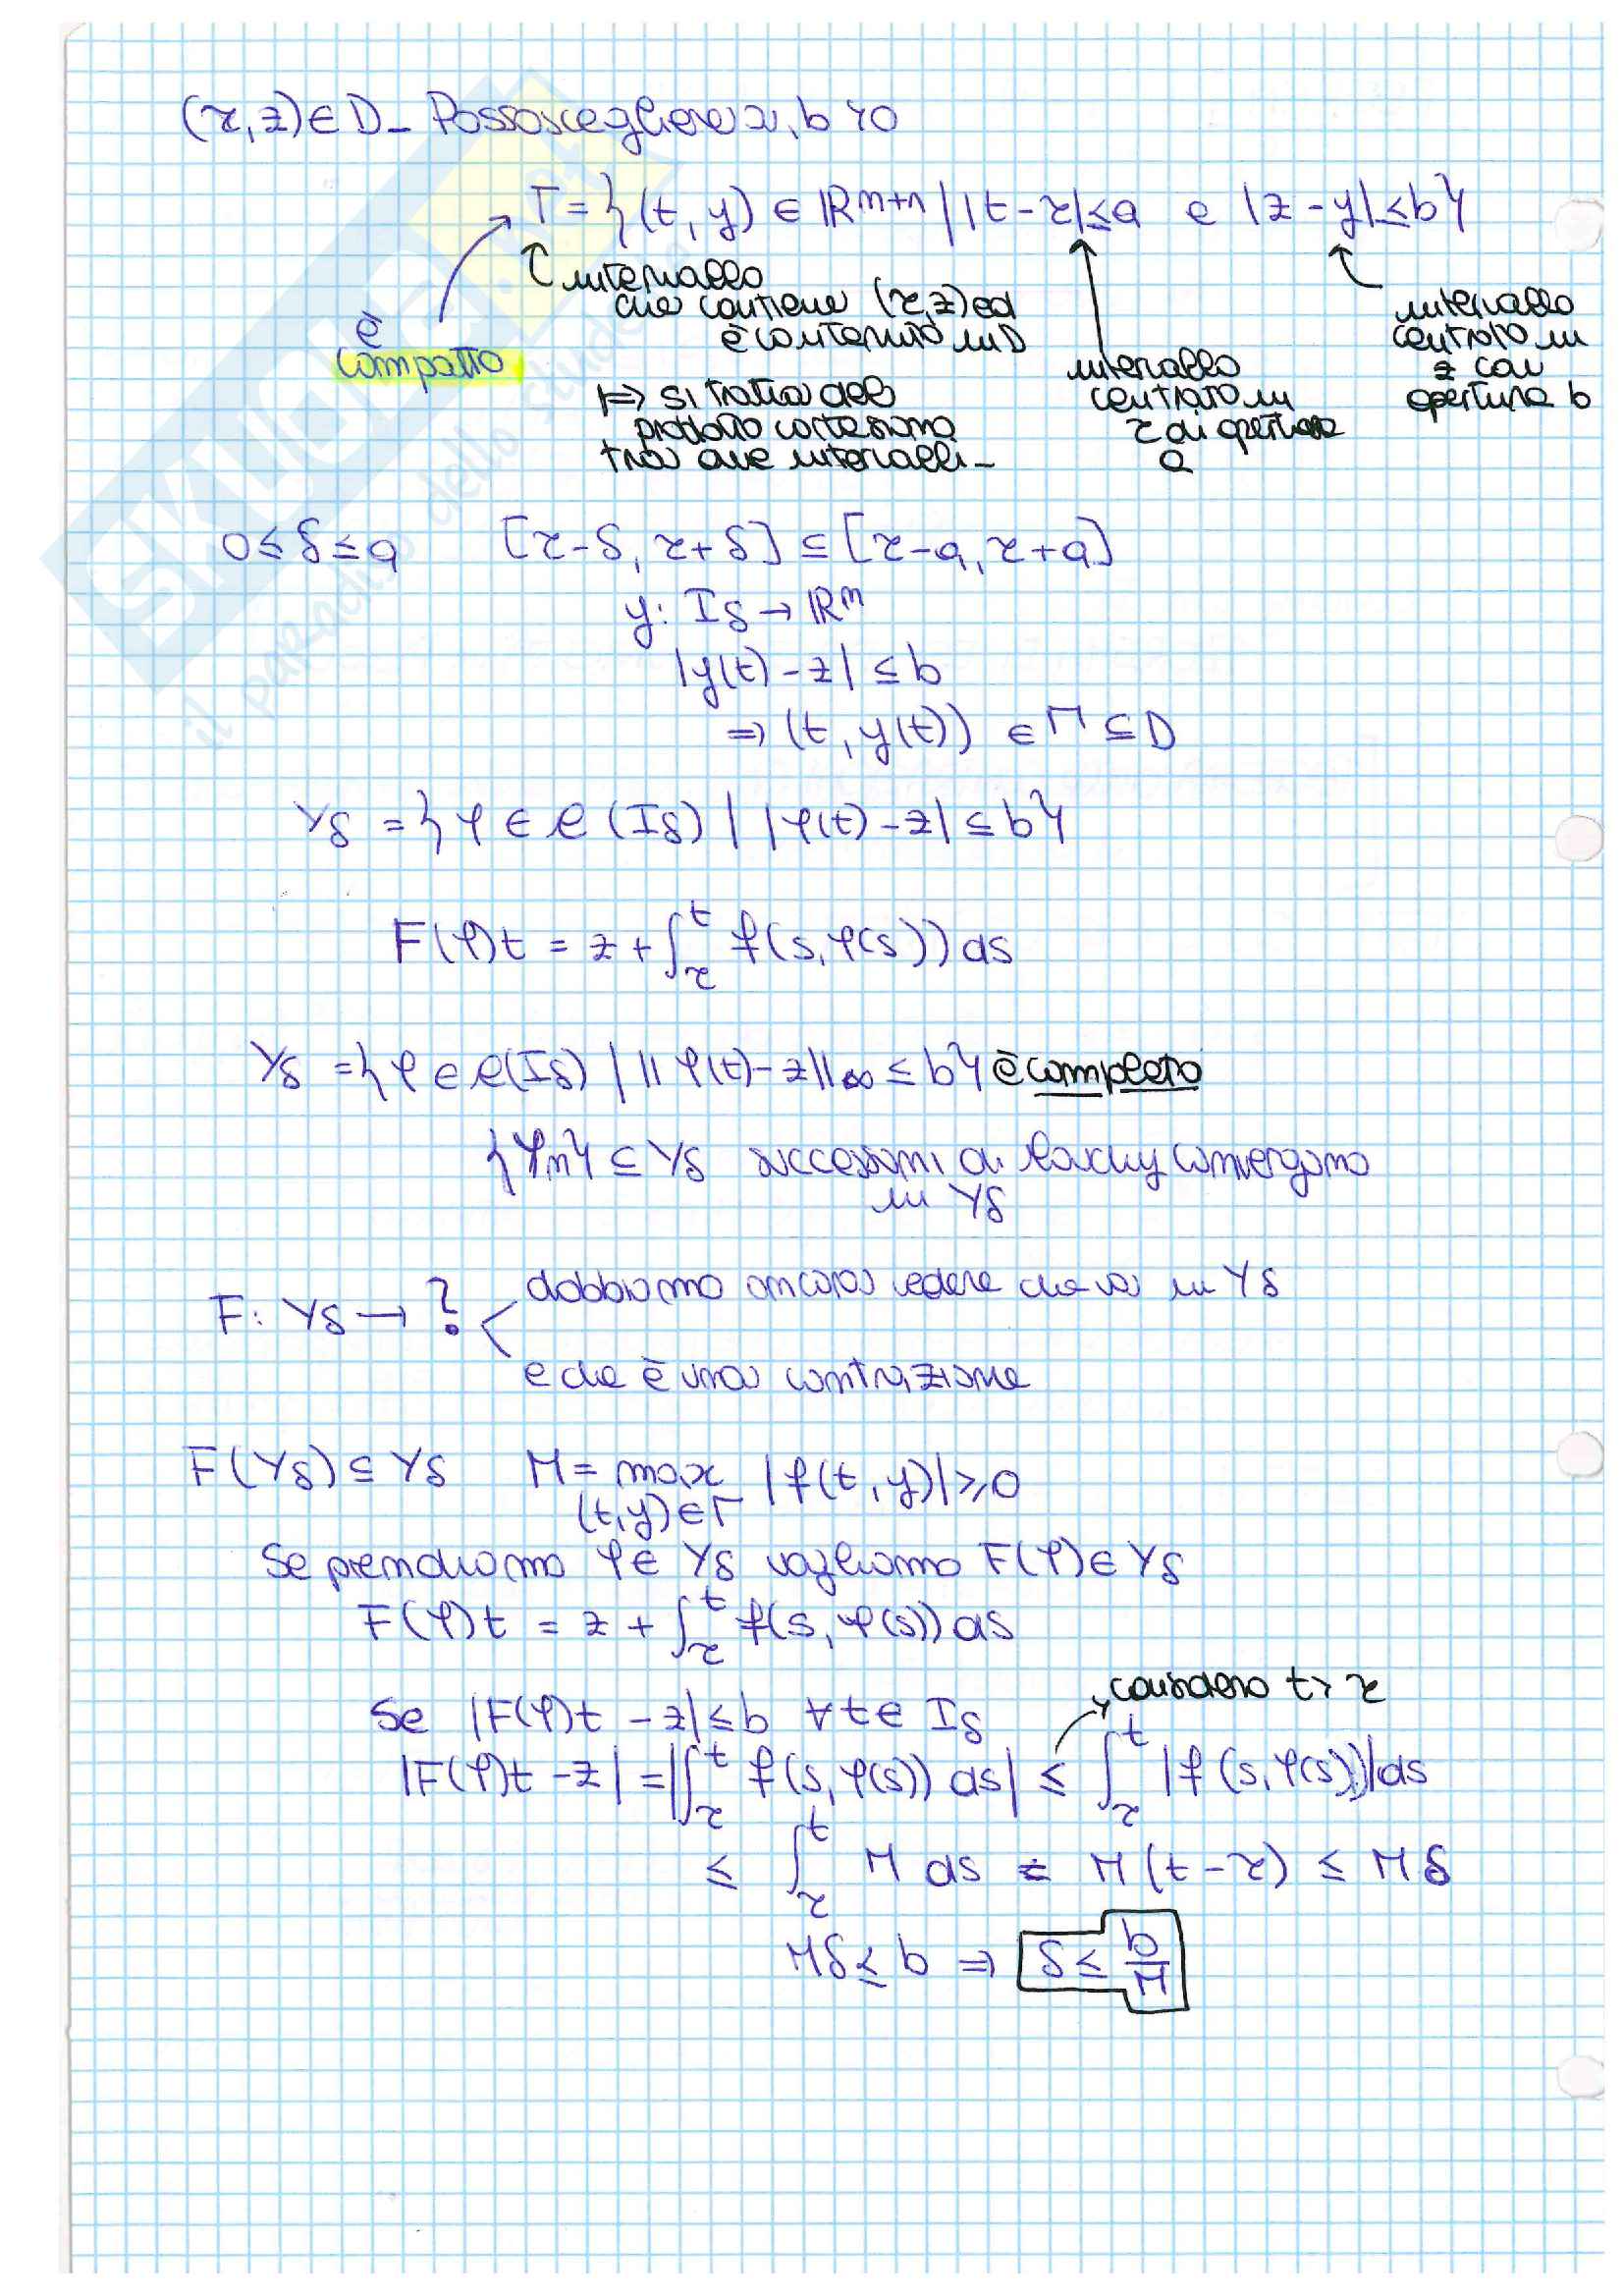 (τ, z) ∈ D_ Posso scegliere a, b > 0
Γ = {(t, y) ∈ ℝ^{m+n} | |t - τ| ≤ a e |z - y| ≤ b}
è
compatto
intervallo
che contiene (τ, z) ed
è contenuto in D
|⇒ si tratta del
prodotto cartesiano
tra due intervalli_
intervallo
centrato in
τ di apertura
a
intervallo
centrato in
z con
apertura b
0 ≤ δ ≤ a [τ-δ, τ+δ] ⊆ [τ-a, τ+a]
y: Iδ → ℝ^m
|y(t) - z| ≤ b
⇒ (t, y(t)) ∈ Γ ⊆ D
Yδ = {φ ∈ C(Iδ) | |φ(t) - z| ≤ b}
F(φ)t = z + ∫_τ^t f(s, φ(s)) ds
Yδ = {φ ∈ C(Iδ) | ||φ(t) - z||∞ ≤ b} è completo
{φn} ⊆ Yδ successioni di Cauchy convergono
in Yδ
F: Yδ → ?
dobbiamo ancora vedere che va in Yδ
e che è una contrazione
F(Yδ) ⊆ Yδ M = max |f(t, y)| ≥ 0
(t,y) ∈ Γ
Se prendiamo φ ∈ Yδ vogliamo F(φ) ∈ Yδ
F(φ)t = z + ∫_τ^t f(s, φ(s)) ds
considero t > τ
Se |F(φ)t - z| ≤ b ∀ t ∈ Iδ
|F(φ)t - z| = |∫_τ^t f(s, φ(s)) ds| ≤ ∫_τ^t |f(s, φ(s))| ds
≤ ∫_τ^t M ds = M(t - τ) ≤ Mδ
Mδ ≤ b ⇒ δ ≤ b/M
SKUOLA.net
il paradiso dello studente